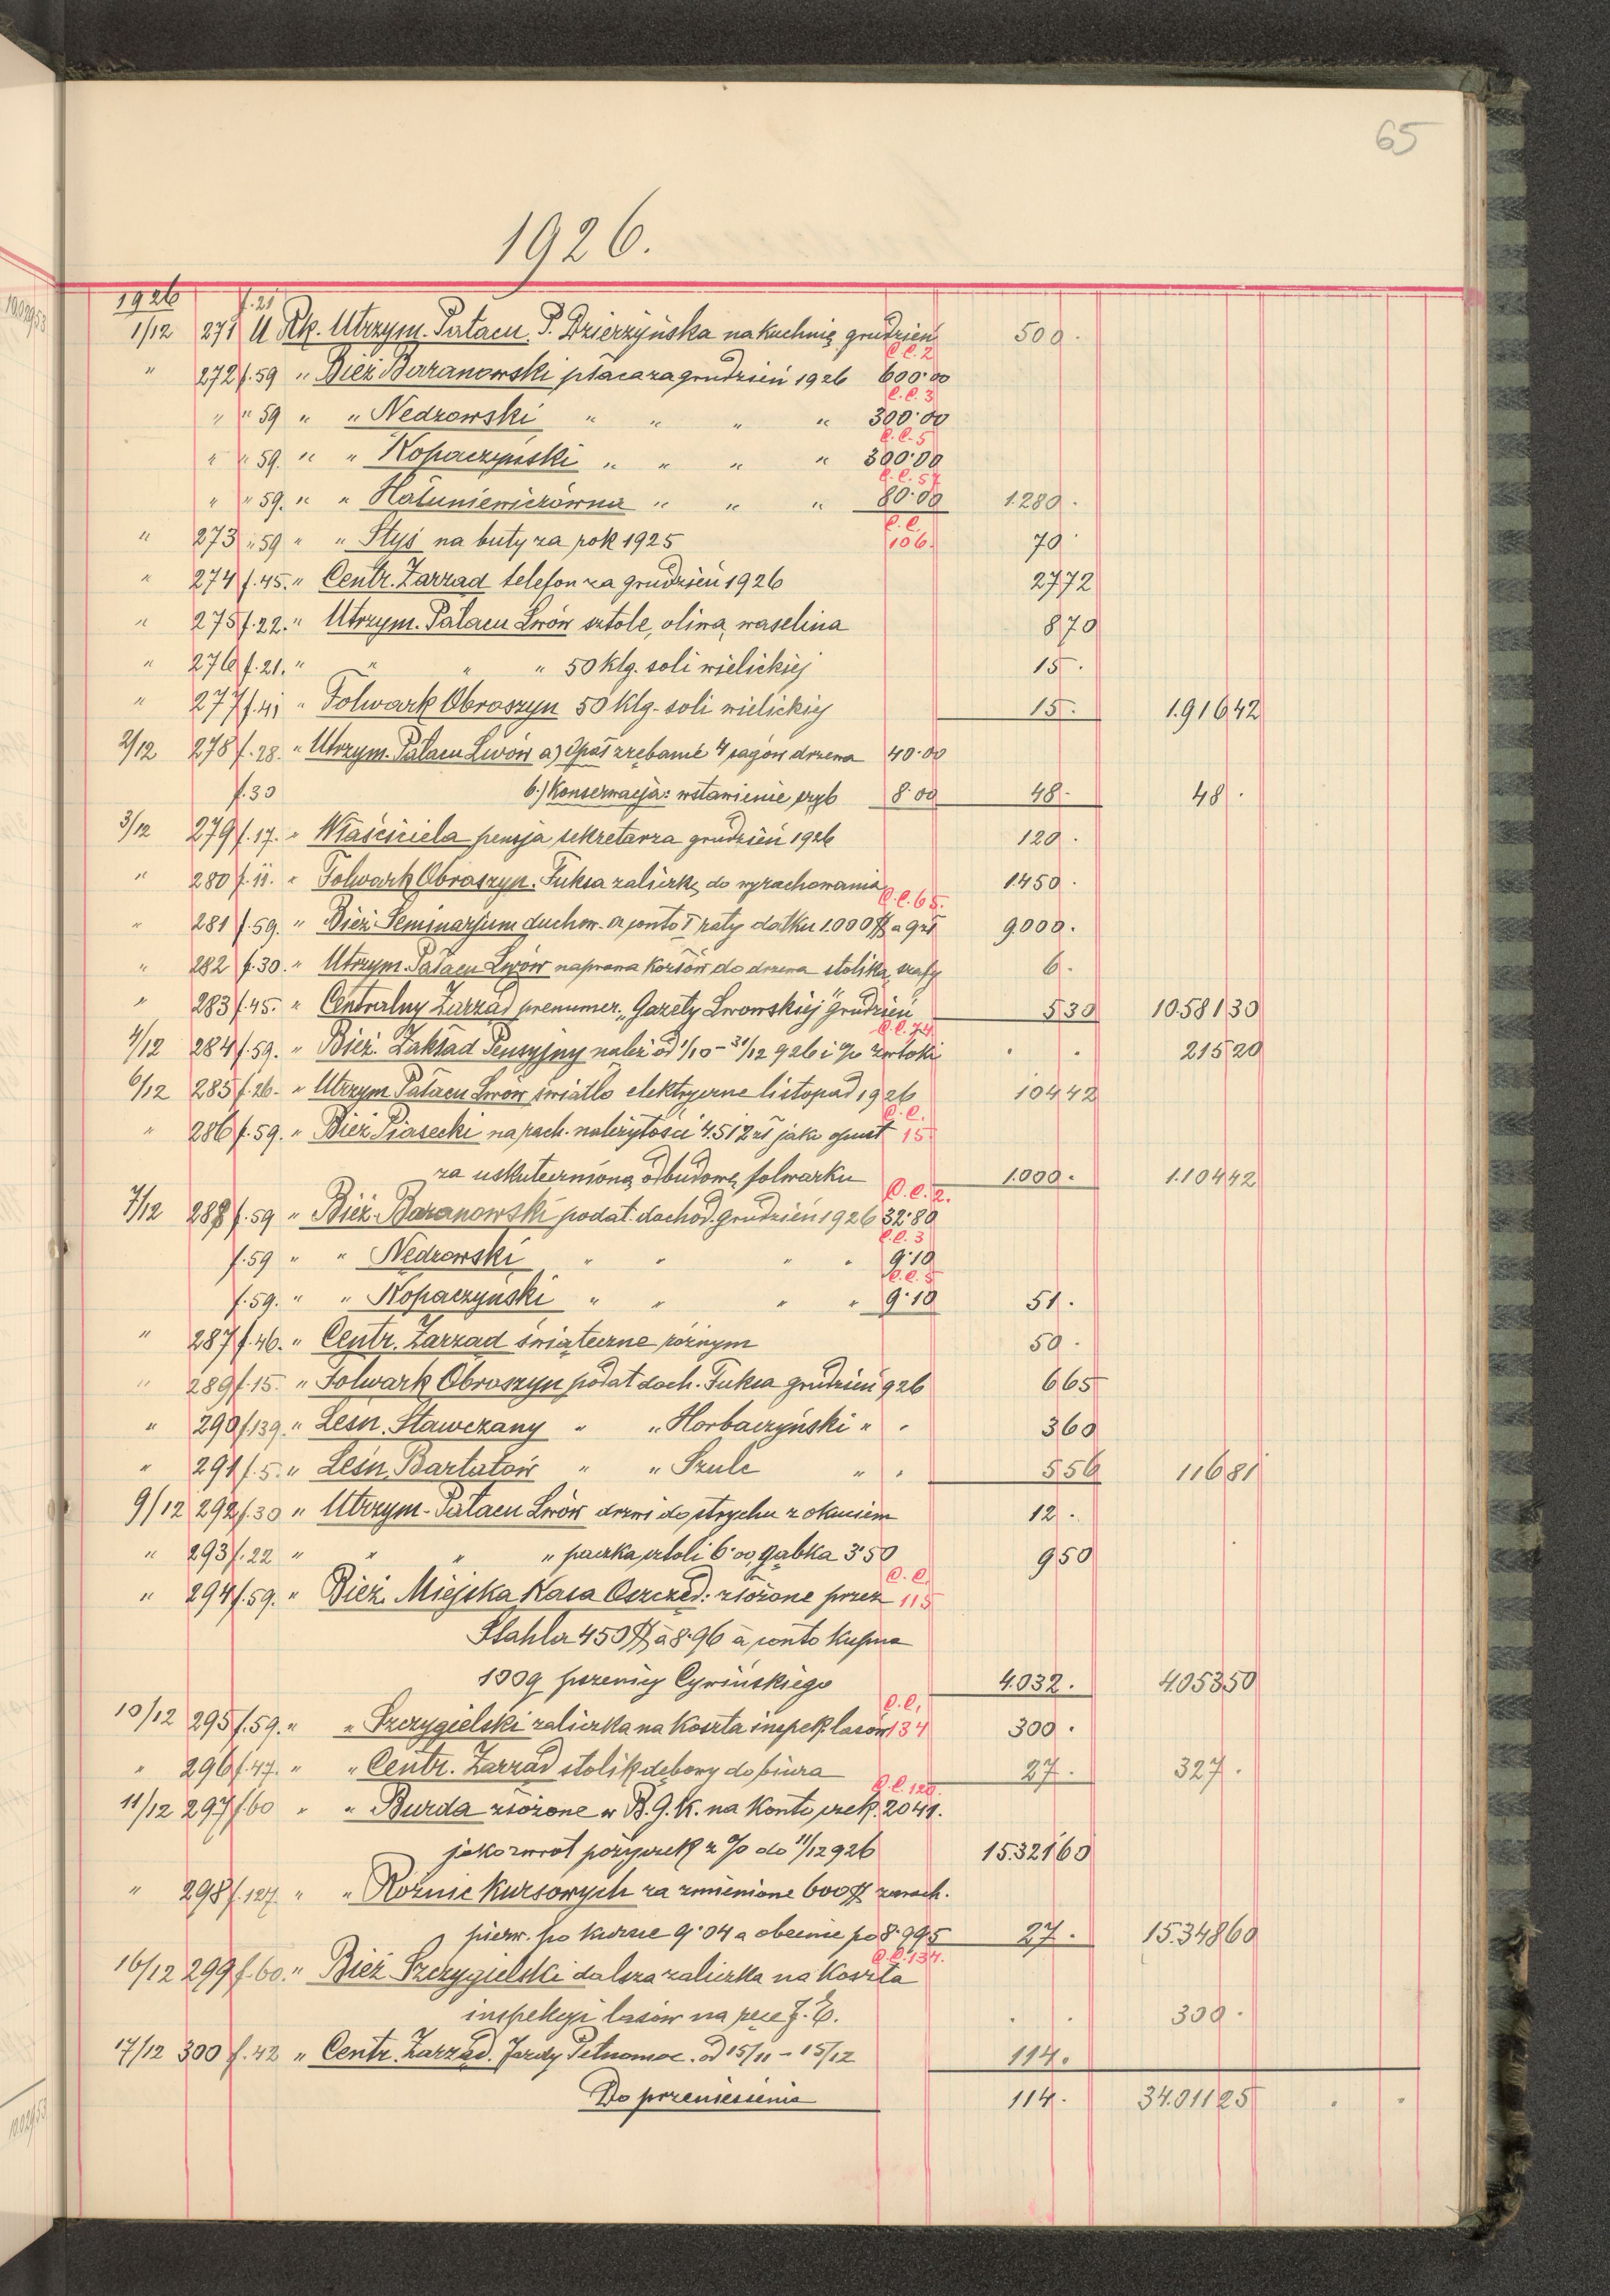 65
1926.
1926 f.21
1/12 271 U Rk. Utrzym. Pałacu P. Dzierzyńska na kuchnię grudzień 500.
C.C.2
" 272 f.59 " Bież Baranowski płaca za grudzień 1926 600.00
C.C.3
" " 59 " " Nedzowski " " " " 300.00
C.C.5
" " 59. " " Kopaczyński " " " " 300.00
C.C.57
" " 59. " " Hałuniewiczówna " " " 80.00 1.280.
C.C.
" 273 " 59 " " Styś na buty za rok 1925 106. 70
" 274 f.45. " Centr. Zarząd telefon za grudzień 1926 27 72
" 275 f.22. " Utrzym. Pałacu Lwów sztole, oliwa, waselina 8 70
" 276 f.21. " " " " 50 klg. soli wielickiej 15.
" 277 f.41 " Folwark Obroszyn 50 klg. soli wielickiej 15. 1.916 42
2/12 278 f.28. " Utrzym. Pałacu Lwów a) Opał zrębanie 4 sągów drzewa 40.00
f.30 b.) Konserwacja: wstawienie szyb 8.00 48. 48.
3/12 279 f.17. " Właściciela pensja sekretarza grudzień 1926 120.
" 280 f.11. " Folwark Obroszyn. Fuksa zaliczkę do wyrachowania 1450.
C.C.65.
" 281 f.59. " Bież Seminarjum duchow. a conto I raty datku 1.000 $ a 9 zł 9.000.
" 282 f.30. " Utrzym. Pałacu Lwów naprawa kozłów do drzewa stolika, szafy 6.
" 283 f.45. " Centralny Zarząd prenumer. "Gazety Lwowskiej" grudzień 5 30 10.581 30
C.C.74
4/12 284 f.59. " Bież. Zakład Pensyjny należ od 1/10 – 31/12 926 i % zwłoki . . 215 20
6/12 285 f.26. " Utrzym Pałacu Lwów światło elektryczne listopad 1926 104 42
C.C.
" 286 f.59. " Bież Piasecki na rach. należytości 4.512 zł jako opust 15
za uskutecznioną odbudowę folwarku 1.000. 1.104 42
C.C.2.
7/12 288 f.59 " Bież. Baranowski podat. dochod. grudzień 1926 32.80
C.C.3
f.59 " " Nedzowski " " " " 9.10
C.C.5
f.59. " " Kopaczyński " " " " 9.10 51.
" 287 f.46. " Centr. Zarząd świąteczne różnym 50.
" 289 f.15. " Folwark Obroszyn podat doch. Fuksa grudzień 926 6 65
" 290 f.139. " Leśn. Stawczany " " Horbaczyński " " 3 60
" 291 f.5. " Leśn. Bartatów " " Szulc " " 5 56 116 81
9/12 292 f.30 " Utrzym. Pałacu Lwów drzwi do strychu z okuciem 12.
" 293 f.22 " " " " paczka sztoli 6.00, gąbka 3.50 9 50
C.C.
" 294 f.59. " Bież. Miejska Kasa Oszczęd: złożone przez 115
Stahla 450 $ à 8.96 a conto kupna
100 q pszenicy Cyrińskiego 4.032. 4.053 50
C.C.
10/12 295 f.59. " " Szczygielski zaliczka na koszta inspek. lasów 134 300.
" 296 f.47. " " Centr. Zarząd stolik dębowy do biura 27. 327.
C.C.120.
11/12 297 f.60 " " Burda złożone w B.G.K. na konto czek. 2041.
jako zwrot pożyczek z % do 11/12 926 15.321 60
" 298 f.127. " " Różnic kursowych za zmienione 600 $ zarach.
pierw. po kursie 9.04 a obecnie po 8.995 27. 15.348 60
C.C.134.
16/12 299 f.60. " Bież Szczygielski dalsza zaliczka na koszta
inspekcji lasów na ręce J.E. . . 300.
17/12 300 f.42 " Centr. Zarząd. Jazdy Pełnomoc. od 15/11 – 15/12 114.
Do przeniesienia 114. 34.011 25 . .